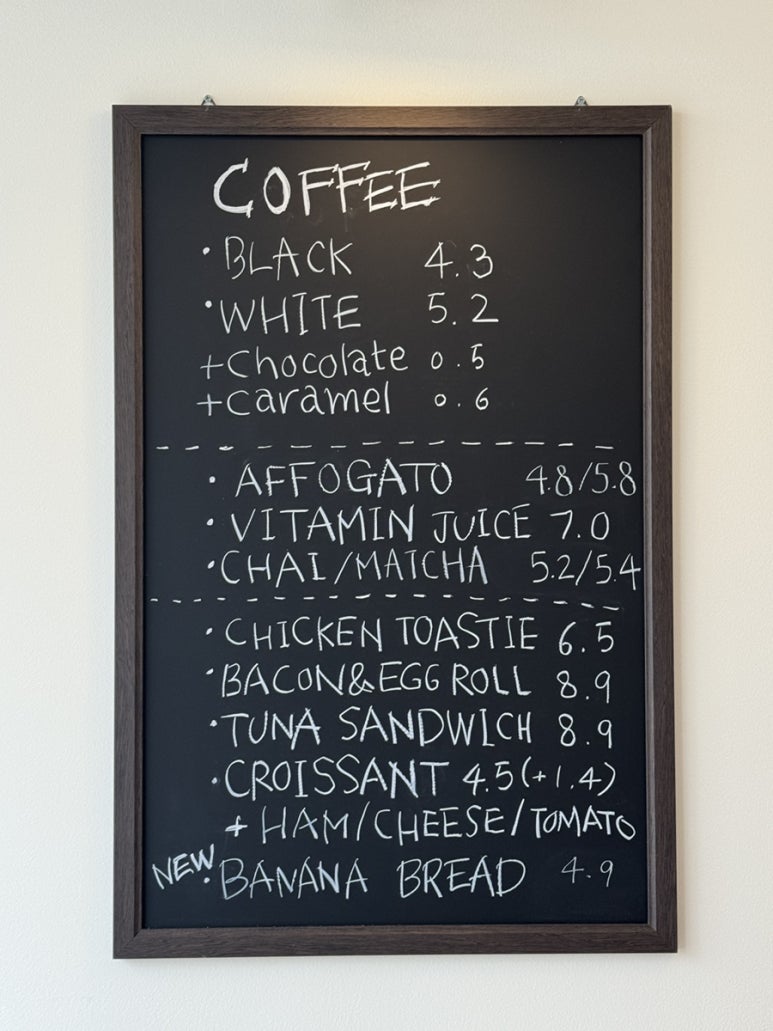 COFFEE
· BLACK 4.3
· WHITE 5.2
+Chocolate 0.5
+Caramel 0.6
· AFFOGATO 4.8/5.8
· VITAMIN JUICE 7.0
· CHAI/MATCHA 5.2/5.4
· CHICKEN TOASTIE 6.5
· BACON&EGG ROLL 8.9
· TUNA SANDWICH 8.9
· CROISSANT 4.5(+1.4)
+ HAM/CHEESE/TOMATO
NEW · BANANA BREAD 4.9